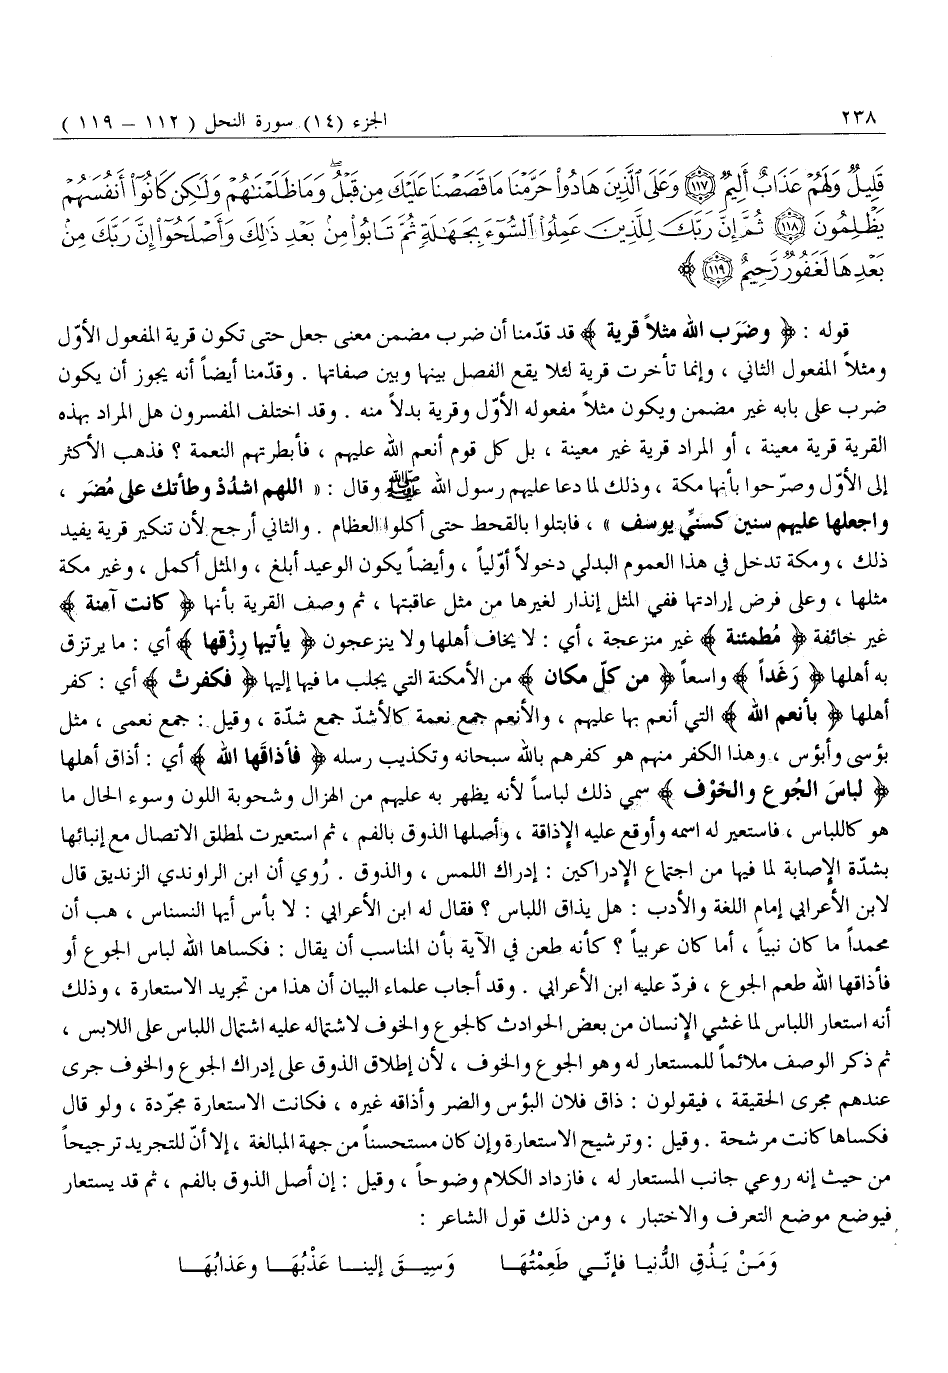 ٢٣٨
الجزء (١٤) سورة النحل ( ١١٢ – ١١٩ )
قَلِيلٌ وَلَهُمْ عَذَابٌ أَلِيمٌ ﴿١١٧﴾ وَعَلَى ٱلَّذِينَ هَادُوا۟ حَرَّمْنَا مَا قَصَصْنَا عَلَيْكَ مِن قَبْلُ ۖ وَمَا ظَلَمْنَٰهُمْ وَلَٰكِن كَانُوٓا۟ أَنفُسَهُمْ
يَظْلِمُونَ ﴿١١٨﴾ ثُمَّ إِنَّ رَبَّكَ لِلَّذِينَ عَمِلُوا۟ ٱلسُّوٓءَ بِجَهَٰلَةٍ ثُمَّ تَابُوا۟ مِنۢ بَعْدِ ذَٰلِكَ وَأَصْلَحُوٓا۟ إِنَّ رَبَّكَ مِنۢ
بَعْدِهَا لَغَفُورٌ رَّحِيمٌ ﴿١١٩﴾ ﴾
قوله : ﴿ وضَرَب الله مثلاً قرية ﴾ قد قدّمنا أن ضرب مضمن معنى جعل حتى تكون قرية المفعول الأوّل
ومثلاً المفعول الثاني ، وإنما تأخرت قرية لئلا يقع الفصل بينها وبين صفاتها . وقدّمنا أيضاً أنه يجوز أن يكون
ضرب على بابه غير مضمن ويكون مثلاً مفعوله الأوّل وقرية بدلاً منه . وقد اختلف المفسرون هل المراد بهذه
القرية قرية معينة ، أو المراد قرية غير معينة ، بل كل قوم أنعم الله عليهم ، فأبطرتهم النعمة ؟ فذهب الأكثر
إلى الأوّل وصرّحوا بأنها مكة ، وذلك لما دعا عليهم رسول الله ﷺ وقال : « اللهم اشدُدْ وطأتك على مُضَر ،
واجعلها عليهم سنين كسنيِّ يوسف » ، فابتلوا بالقحط حتى أكلوا العظام . والثاني أرجح لأن تنكير قرية يفيد
ذلك ، ومكة تدخل في هذا العموم البدلي دخولاً أوّلياً ، وأيضاً يكون الوعيد أبلغ ، والمثل أكمل ، وغير مكة
مثلها ، وعلى فرض إرادتها ففي المثل إنذار لغيرها من مثل عاقبتها ، ثم وصف القرية بأنها ﴿ كانت آمنة ﴾
غير خائفة ﴿ مُطمئنة ﴾ غير منزعجة ، أي : لا يخاف أهلها ولا ينزعجون ﴿ يأتيها رِزْقها ﴾ أي : ما يرتزق
به أهلها ﴿ رَغَداً ﴾ واسعاً ﴿ من كلّ مكان ﴾ من الأمكنة التي يجلب ما فيها إليها ﴿ فكفرتْ ﴾ أي : كفر
أهلها ﴿ بأنعم الله ﴾ التي أنعم بها عليهم ، والأنعم جمع نعمة كالأشدّ جمع شدّة ، وقيل : جمع نعمى ، مثل
بؤسى وأبؤس ، وهذا الكفر منهم هو كفرهم بالله سبحانه وتكذيب رسله ﴿ فأذاقَها الله ﴾ أي : أذاق أهلها
﴿ لباسَ الجُوع والخَوْف ﴾ سمي ذلك لباساً لأنه يظهر به عليهم من الهزال وشحوبة اللون وسوء الحال ما
هو كاللباس ، فاستعير له اسمه وأوقع عليه الإذاقة ، وأصلها الذوق بالفم ، ثم استعيرت لمطلق الاتصال مع إنبائها
بشدّة الإصابة لما فيها من اجتماع الإدراكين : إدراك اللمس ، والذوق . رُوي أن ابن الراوندي الزنديق قال
لابن الأعرابي إمام اللغة والأدب : هل يذاق اللباس ؟ فقال له ابن الأعرابي : لا بأس أيها النسناس ، هب أن
محمداً ما كان نبياً ، أما كان عربياً ؟ كأنه طعن في الآية بأن المناسب أن يقال : فكساها الله لباس الجوع أو
فأذاقها الله طعم الجوع ، فردّ عليه ابن الأعرابي . وقد أجاب علماء البيان أن هذا من تجريد الاستعارة ، وذلك
أنه استعار اللباس لما غشي الإنسان من بعض الحوادث كالجوع والخوف لاشتماله عليه اشتمال اللباس على اللابس ،
ثم ذكر الوصف ملائماً للمستعار له وهو الجوع والخوف ، لأن إطلاق الذوق على إدراك الجوع والخوف جرى
عندهم مجرى الحقيقة ، فيقولون : ذاق فلان البؤس والضر وأذاقه غيره ، فكانت الاستعارة مجرّدة ، ولو قال
فكساها كانت مرشحة . وقيل : وترشيح الاستعارة وإن كان مستحسناً من جهة المبالغة ، إلا أنّ للتجريد ترجيحاً
من حيث إنه روعي جانب المستعار له ، فازداد الكلام وضوحاً ، وقيل : إن أصل الذوق بالفم ، ثم قد يستعار
فيوضع موضع التعرف والاختبار ، ومن ذلك قول الشاعر :
وَمَنْ يَذُقِ الدُّنيا فإنّي طَعِمْتُهَا وَسِيقَ إلينا عَذْبُهَا وعَذابُهَا